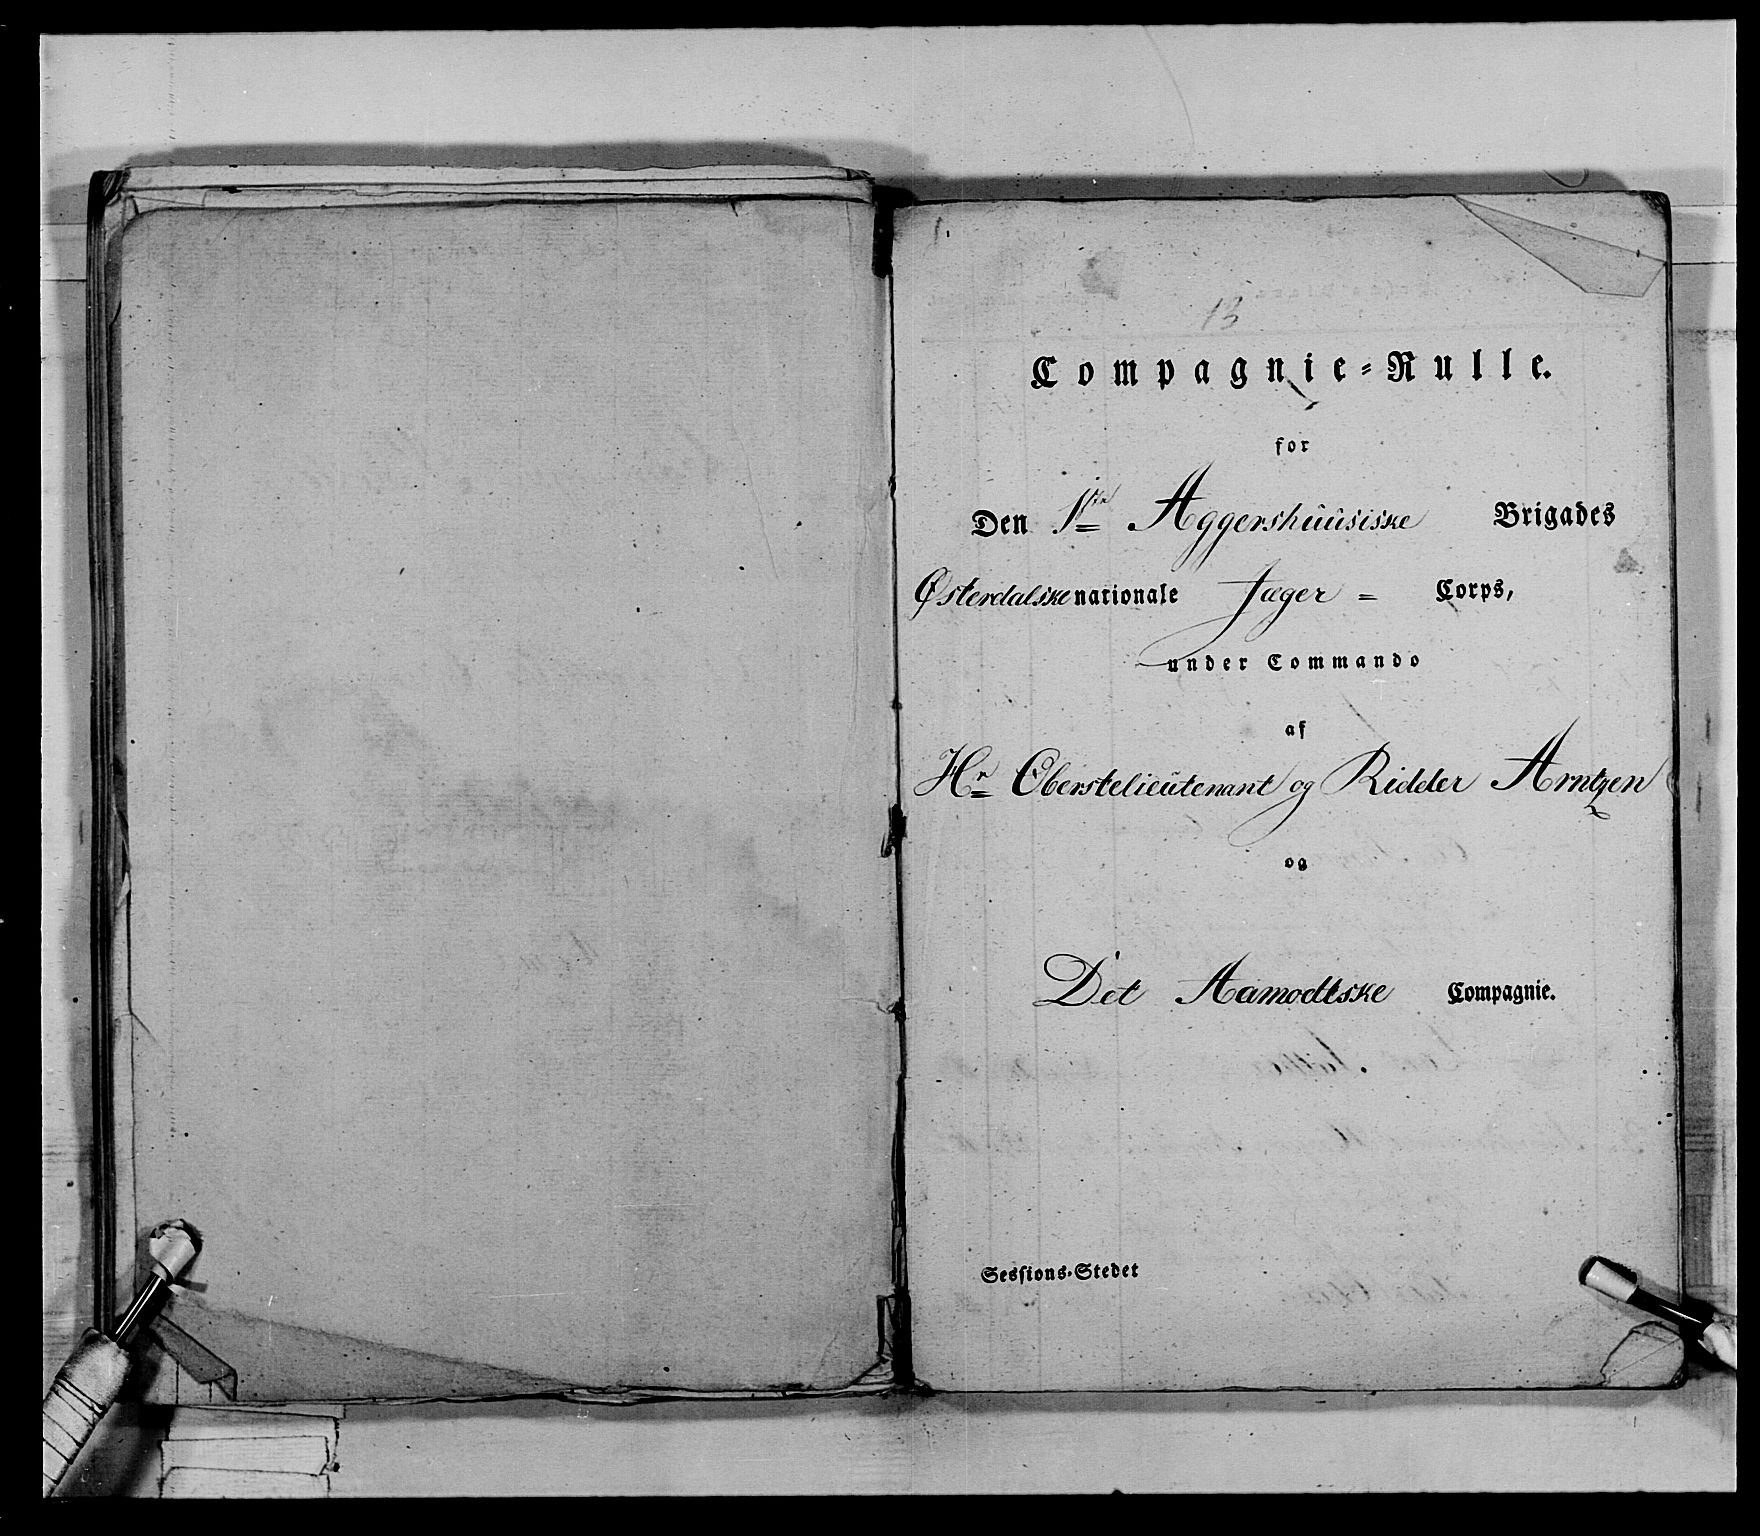 13
Compagnie-Rulle.
for
Den 1ste Aggershuusiske Brigades
Østerdalske nationale Jæger- Corps,
under Commando
af
Hr Oberstelieutenant og Ridder Arntzen
og
Det Aamodtske Compagnie.
Sessions-Stedet